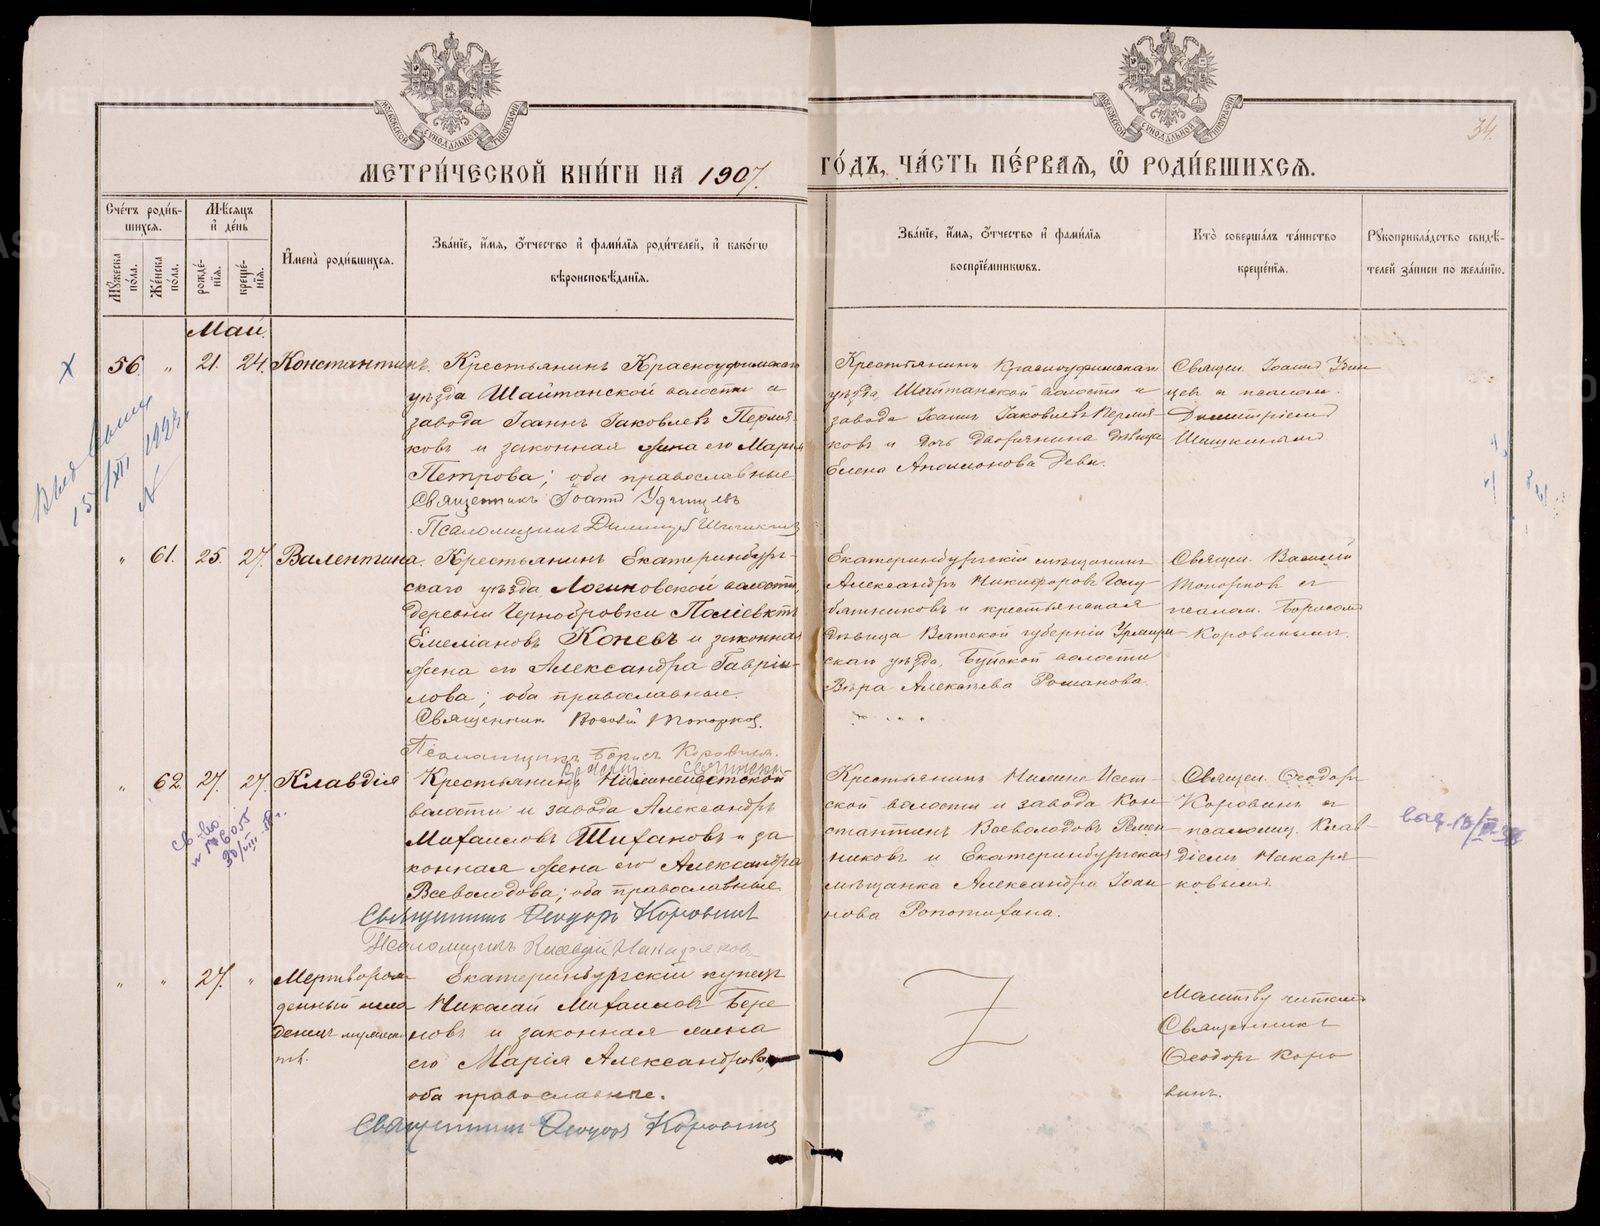 34.
МЕТРИ́ЧЕСКОЙ КНИ́ГИ НА 1907. ГО́ДЪ, ЧА́СТЬ ПЕ́РВАЯ, Ѡ҆ РОДИ́ВШИХСЯ.
Сче́тъ роди́в-
шихся.
Мѣ́сяцъ
и҆ де́нь
Мꙋ́жеска по́ла.
Же́нска по́ла.
рожде́-нїя.
креще́-нїя.
И҆мена̀ роди́вшихся.
Зва́нїе, и҆́мя, ѻ҆́тчество и҆ фами́лїя роди́телей, и҆ како́гѡ
вѣроисповѣ́данїя.
Зва́нїе, и҆́мя, ѻ҆́тчество и҆ фами́лїя
воспрїе́мникѡвъ.
Кто̀ соверша́лъ та́инство
креще́нїя.
Рꙋкоприкла́дство свидѣ́-
телей за́писи по жела́нїю.
Май.
56. „ 21. 24. Константинъ.
Крестьянинъ Красноуфимскаго
уѣзда Шайтанской волости и
завода Іоаннъ Іаковлевъ Пермя-
ковъ и законная жена его Марія
Петрова; оба православные
Священникъ Іоаннъ Удинцевъ
Псаломщикъ Димитрій Шишкинъ
Крестьянинъ Красноуфимскаго
уѣзда, Шайтанской волости и
завода Іоаннъ Іаковлевъ Пермя-
ковъ и дочь дворянина дѣвица
Елена Аполлонова Деви.
Священ. Іоаннъ Удин
цев и псалом.
Димитріемъ
Шишкинымъ
15/XII 1923
„ 61. 25. 27. Валентина.
Крестьянинъ Екатеринбург-
скаго уѣзда Логиновской волости,
деревни Чернобровки Поліевктъ
Емеліановъ Коневъ и законная
жена его Александра Гавріи-
лова; оба православные.
Священник Василій Топорков.
Псаломщикъ Борисъ Коровинъ.
Екатеринбургскій мѣщанинъ
Александръ Никифоровъ Голу-
бятниковъ и крестьянская
дѣвица Вятской губерніи Уржум-
скаго уѣзда, Буйской волости
Вѣра Алексѣева Романова.
Священ. Василій
Топорков съ
псалом. Борисомъ
Коровинымъ.
„ 62. 27. 27. Клавдія
Крестьянинъ Нижнеисетской
волости и завода Александръ
Михаиловъ Тихановъ и за
конная жена его Александра
Всеволодова; оба православные
Священникъ Ѳеодоръ Коровинъ
Псаломщикъ Клавдій Макаряковъ
Крестьянинъ Нижне-Исет-
ской волости и завода Кон
стантинъ Всеволодовъ Ремян
никовъ и Екатеринбургская
мѣщанка Александра Іоан
нова Ропотихана.
Священ. Ѳеодоръ
Коровинъ съ
псаломщ. Клав-
діемъ Макаря
ковымъ.
св-во
„ „ 27. „ Мертворож
денный мла
денецъ мужеска
Екатеринбургскій купецъ
Николай Михаиловъ Бере
новъ и законная жена
его Марія Александрова,
оба православные.
Священникъ Ѳеодоръ Коровинъ
Молитву читалъ
Священникъ
Ѳеодоръ Коро
винъ.